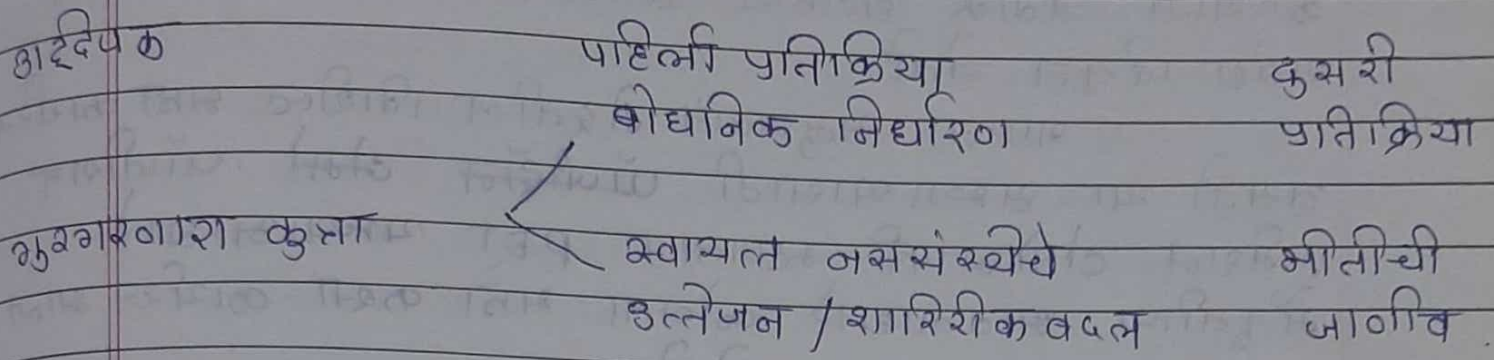 उद्दिपक पहिली प्रतिक्रिया दुसरी
बोधनिक निर्धारण प्रतिक्रिया
गुरगुरणारा कुत्रा स्वायत्त नससंस्थेचे भीतीची
उत्तेजन / शारिरीक बदल जाणीव